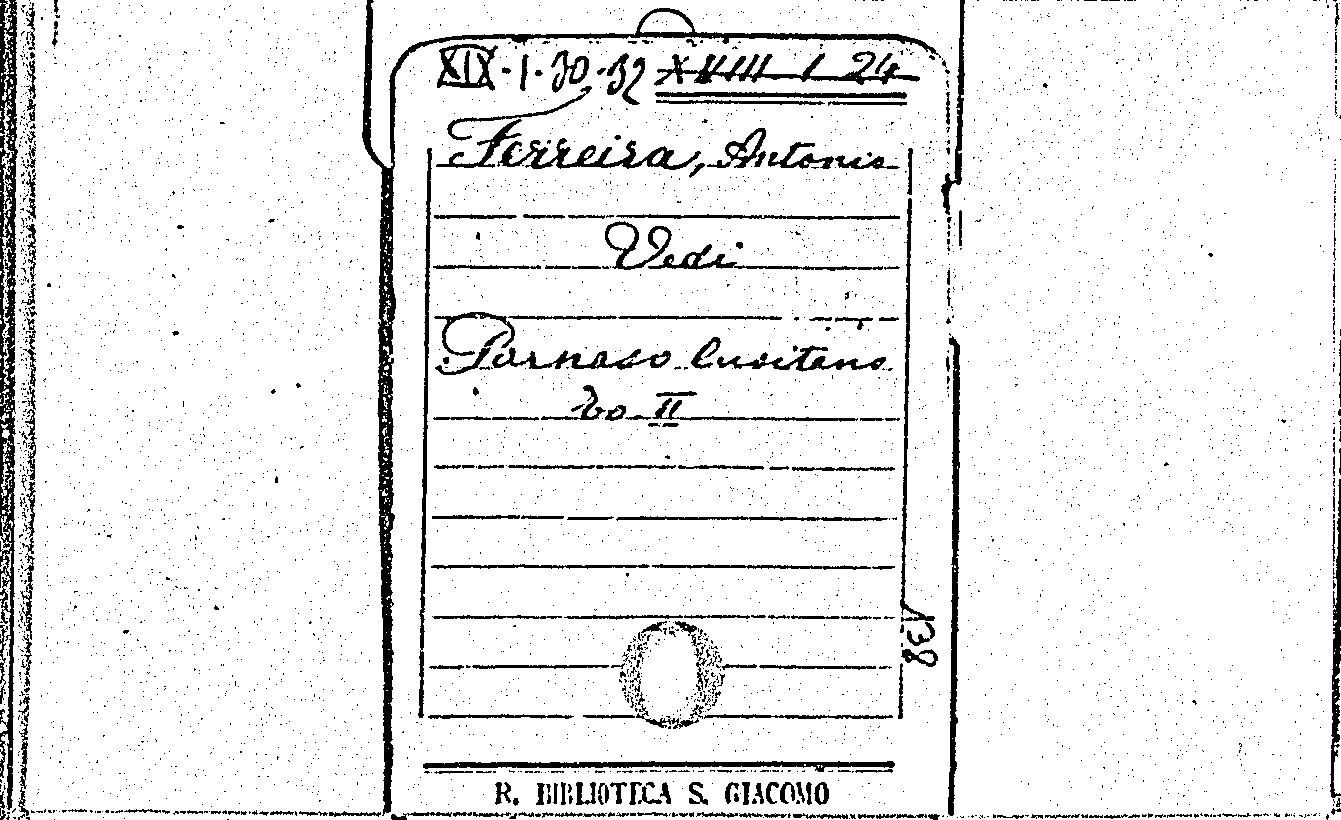 XIX·1·30·32 XVIII 1 24
Ferreira, Antonio
Vedi
Parnaso lusitano
Vo. II
138
R. BIBLIOTECA S. GIACOMO